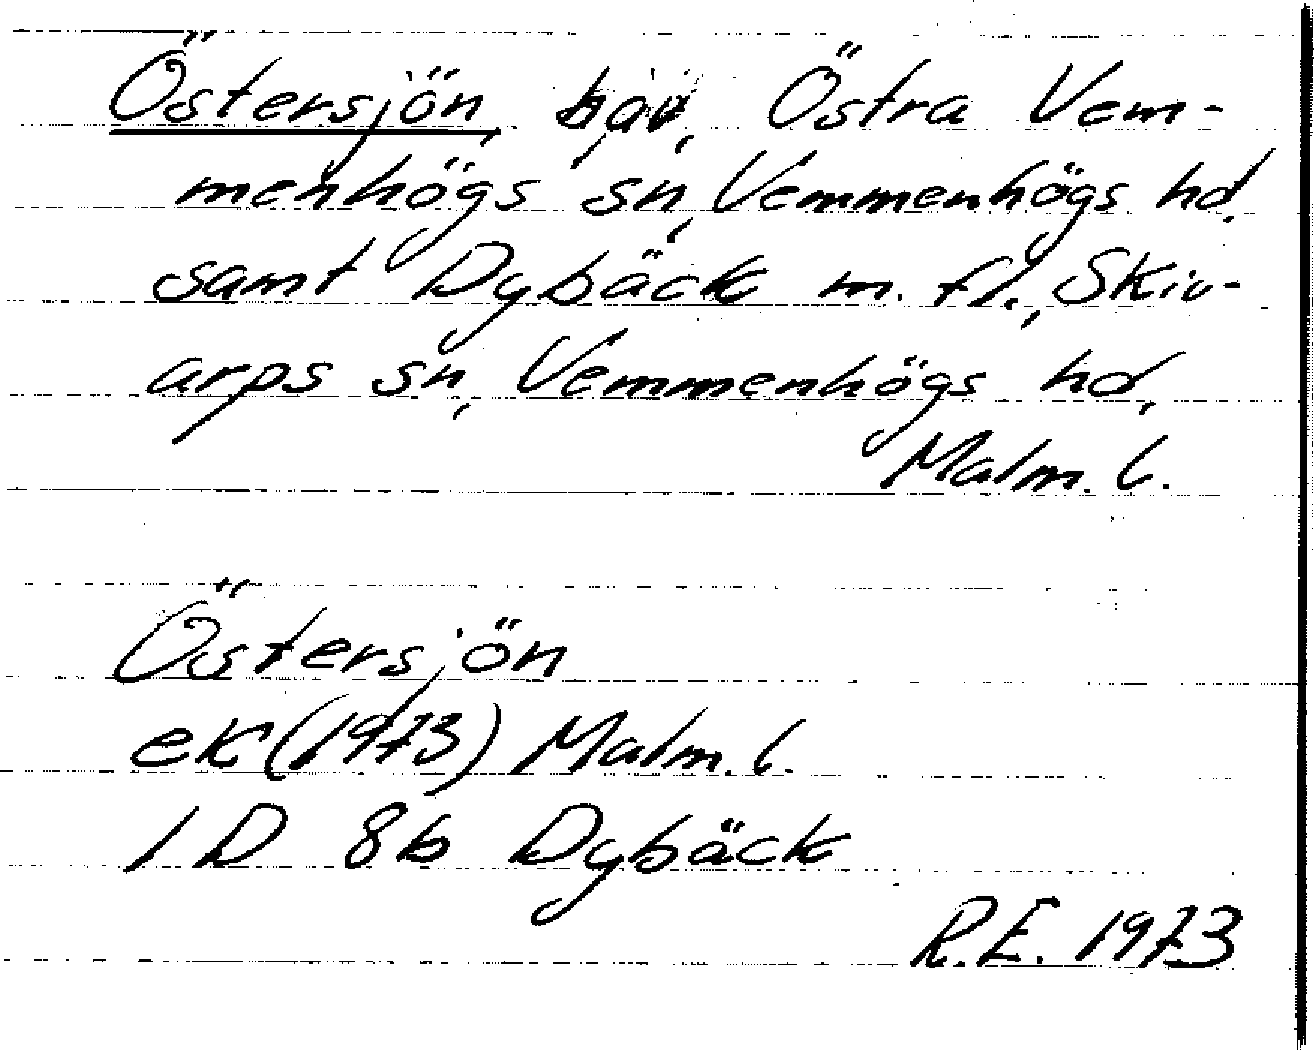 Östersjön, hav, Östra Vem-
menhögs sn, Vemmenhögs hd.
samt Dybäck m. fl., Skiv-
arps sn, Vemmenhögs hd,
Malm. l.
Östersjön
ek (1973) Malm. l.
1 D 8b Dybäck
R.E. 1973